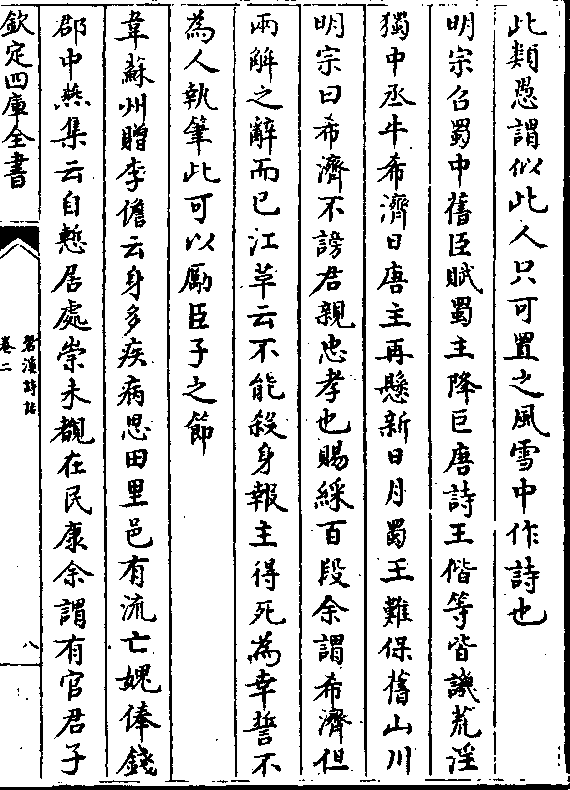 此類愚謂似此人只可置之風雪中作詩也
明宗召蜀中舊臣賦蜀主降臣唐詩王偕等皆譏荒淫
獨中丞牛希濟曰唐主再懸新日月蜀王難保舊山川
明宗曰希濟不謗君親忠孝也賜綵百段余謂希濟但
兩解之辭而已江革云不能殺身報主得死為幸誓不
為人執筆此可以勵臣子之節
韋蘇州贈李儋云身多疾病思田里邑有流亡媿俸錢
郡中燕集云自慙居處崇未覩在民康余謂有官君子
欽定四庫全書
䂬溪詩話
卷二
八